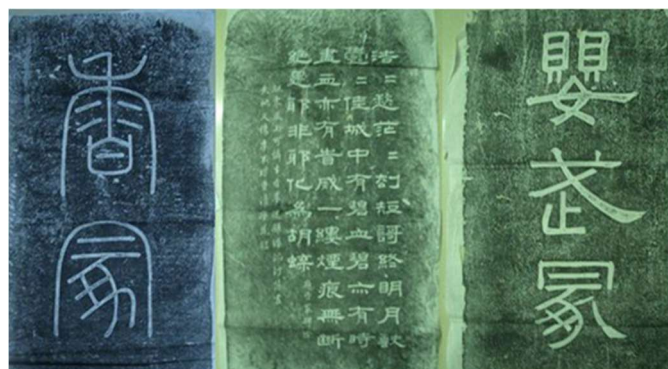 嬰武冢
浩〻愁茫〻刧短哥終明月缺
鬱〻佳城中有碧血碧亦有時
盡血亦有時滅一縷煙痕無斷
絕是耶非耶化為胡蝶
香冢